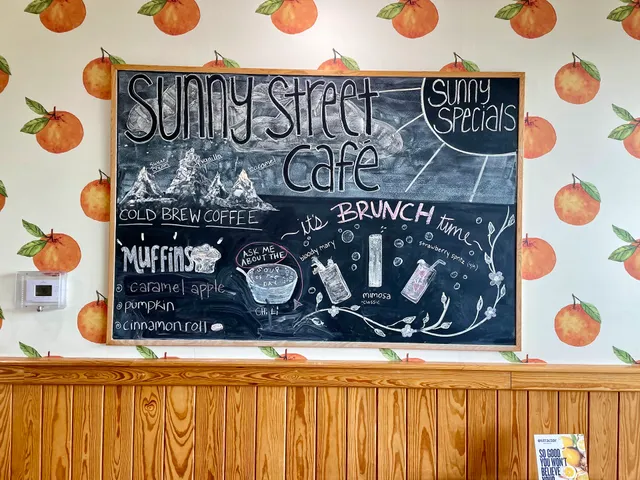 Sunny Street
Café
Sunny
Specials
Vanilla
Caramel
COLD BREW COFFEE
~it's BRUNCH time~
Muffins
caramel apple
pumpkin
cinnamon roll
ASK ME
ABOUT THE
SOUP
OF THE
DAY
CHILI
bloody mary
mimosa
-classic
strawberry
SO GOOD
YOU WON'T
BELIEVE